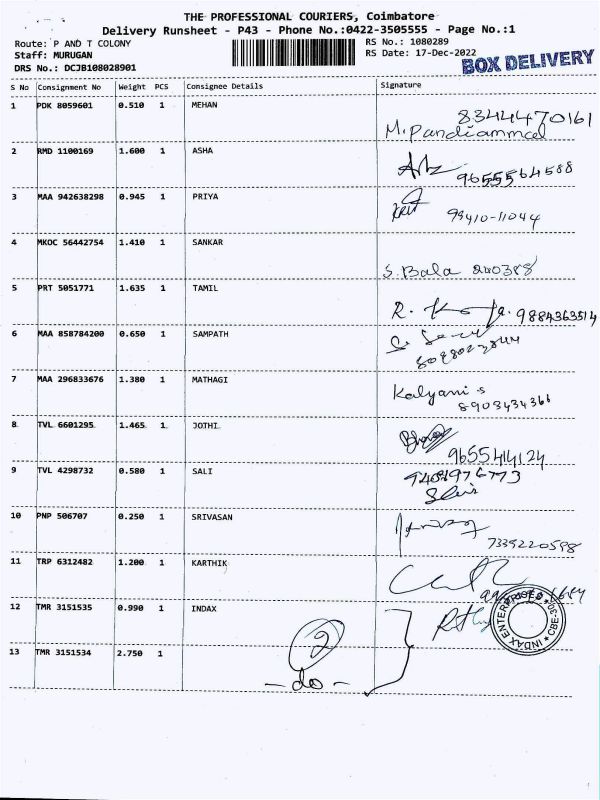 THE PROFESSIONAL COURIERS, Coimbatore
Delivery Runsheet - P43 - Phone No.:0422-3505555 - Page No.:1
Route: P AND T COLONY
Staff: MURUGAN
DRS No.: DCJB108028901
RS No.: 1080289
RS Date: 17-Dec-2022
BOX DELIVERY
S No Consignment No Weight PCS Consignee Details Signature
1 PDK 8059601 0.510 1 MEHAN
8344470161
M. Pandiammal
2 RMD 1100169 1.600 1 ASHA
9655564588
3 MAA 942638298 0.945 1 PRIYA
99410-11044
4 MKOC 56442754 1.410 1 SANKAR
S. Bala 240388
5 PRT 5051771 1.635 1 TAMIL
9884363514
6 MAA 858784200 0.650 1 SAMPATH
7 MAA 296833676 1.380 1 MATHAGI
Kalyani s
8903434366
8 TVL 6601295 1.465 1 JOTHI
9655414124
9 TVL 4298732 0.580 1 SALI
10 PNP 506707 0.250 1 SRIVASAN
7339220598
11 TRP 6312482 1.200 1 KARTHIK
12 TMR 3151535 0.990 1 INDAX
INDAX ENTERPRISES
CBE-30
13 TMR 3151534 2.750 1
2
- do -